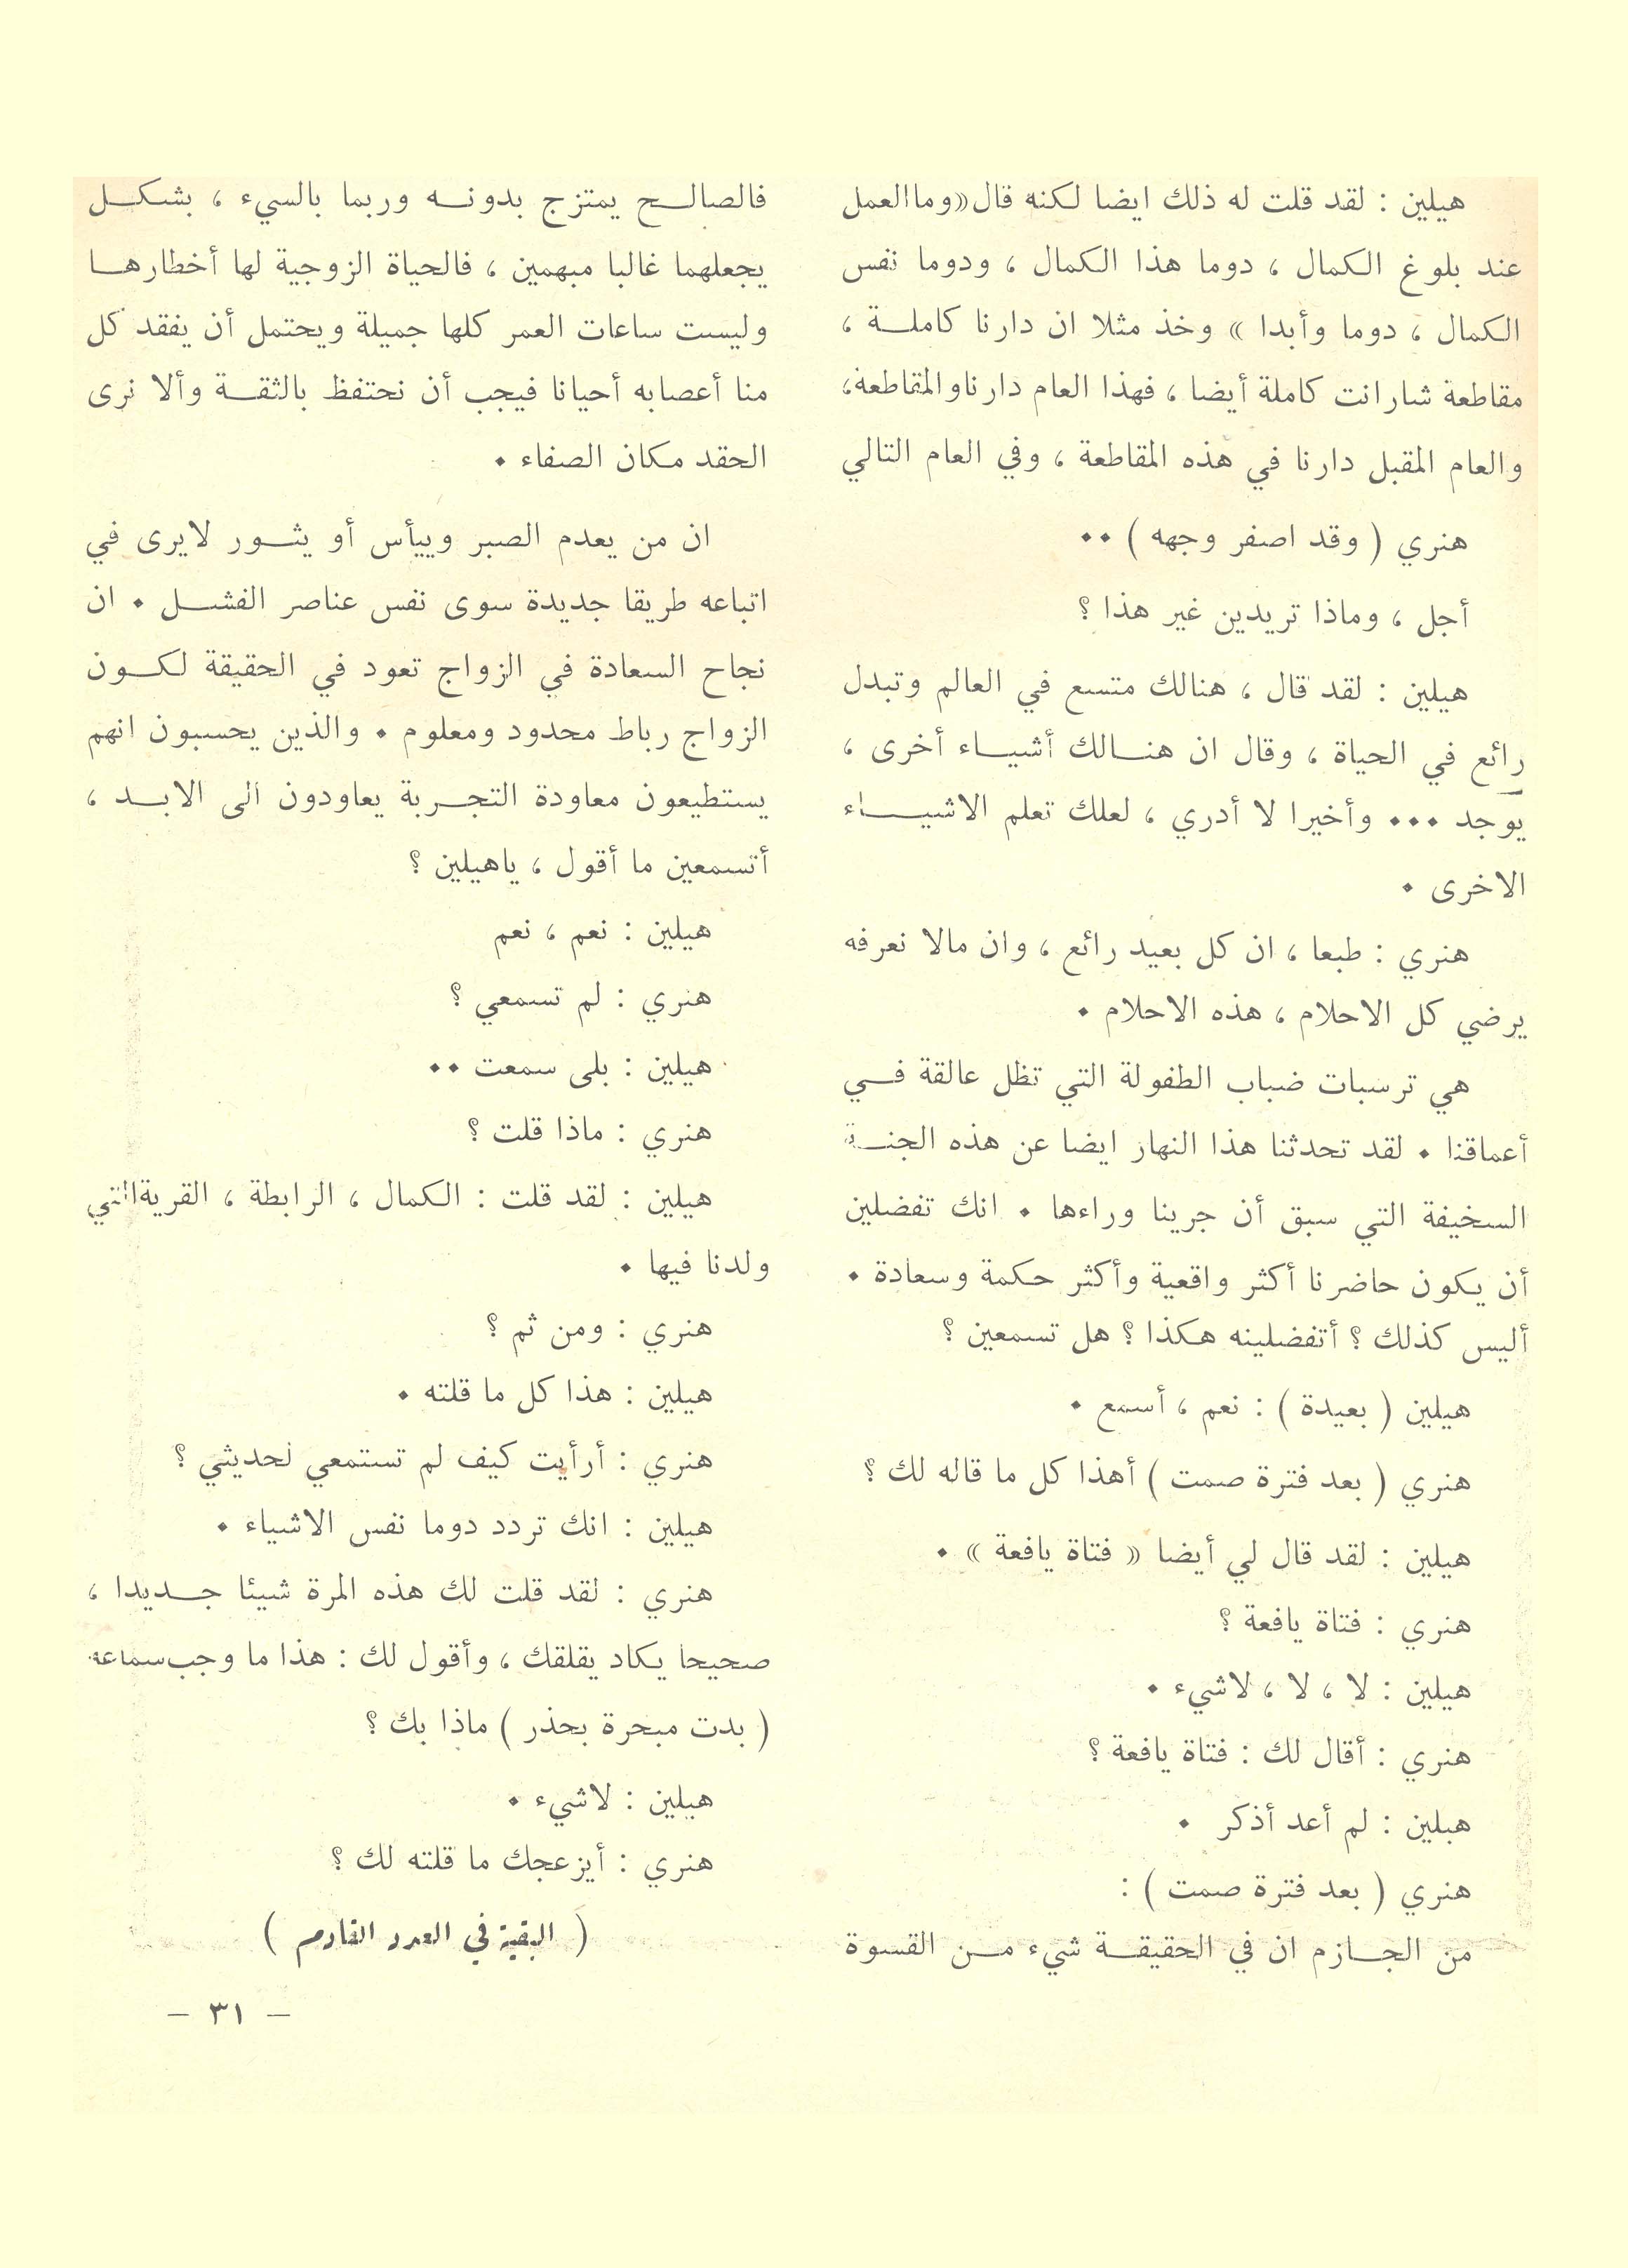 هيلين : لقد قلت له ذلك ايضا لكنه قال «وما العمل
عند بلوغ الكمال ، دوما هذا الكمال ، ودوما نفس
الكمال ، دوما وأبدا » وخذ مثلا ان دارنا كاملة ،
مقاطعة شارانت كاملة أيضا ، فهذا العام دارنا والمقاطعة،
والعام المقبل دارنا في هذه المقاطعة ، وفي العام التالي
هنري ( وقد اصفر وجهه ) ..
أجل ، وماذا تريدين غير هذا ؟
هيلين : لقد قال ، هنالك متسع في العالم وتبدل
رائع في الحياة ، وقال ان هنالك أشياء أخرى ،
يوجد ... وأخيرا لا أدري ، لعلك تعلم الاشياء
الاخرى .
هنري : طبعا ، ان كل بعيد رائع ، وان مالا نعرفه
يرضي كل الاحلام ، هذه الاحلام .
هي ترسبات ضباب الطفولة التي تظل عالقة في
أعماقنا . لقد تحدثنا هذا النهار ايضا عن هذه الجنة
السخيفة التي سبق أن جرينا وراءها . انك تفضلين
أن يكون حاضرنا أكثر واقعية وأكثر حكمة وسعادة .
أليس كذلك ؟ أتفضلينه هكذا ؟ هل تسمعين ؟
هيلين ( بعيدة ) : نعم ، أسمع .
هنري ( بعد فترة صمت ) أهذا كل ما قاله لك ؟
هيلين : لقد قال لي أيضا « فتاة يافعة » .
هنري : فتاة يافعة ؟
هيلين : لا ، لا ، لاشيء .
هنري : أقال لك : فتاة يافعة ؟
هيلين : لم أعد أذكر .
هنري ( بعد فترة صمت ) :
من الجازم ان في الحقيقة شيء من القسوة
فالصالح يمتزج بدونه وربما بالسيء ، بشكل
يجعلهما غالبا مبهمين ، فالحياة الزوجية لها أخطارها
وليست ساعات العمر كلها جميلة ويحتمل أن يفقد كل
منا أعصابه أحيانا فيجب أن نحتفظ بالثقة وألا نرى
الحقد مكان الصفاء .
ان من يعدم الصبر وييأس أو يثور لايرى في
اتباعه طريقا جديدة سوى نفس عناصر الفشل . ان
نجاح السعادة في الزواج تعود في الحقيقة لكون
الزواج رباط محدود ومعلوم . والذين يحسبون انهم
يستطيعون معاودة التجربة يعاودون الى الابد ،
أتسمعين ما أقول ، ياهيلين ؟
هيلين : نعم ، نعم
هنري : لم تسمعي ؟
هيلين : بلى سمعت ..
هنري : ماذا قلت ؟
هيلين : لقد قلت : الكمال ، الرابطة ، القرية التي
ولدنا فيها .
هنري : ومن ثم ؟
هيلين : هذا كل ما قلته .
هنري : أرأيت كيف لم تستمعي لحديثي ؟
هيلين : انك تردد دوما نفس الاشياء .
هنري : لقد قلت لك هذه المرة شيئا جديدا ،
صحيحا يكاد يقلقك ، وأقول لك : هذا ما وجب سماعه
( بدت مبحرة بحذر ) ماذا بك ؟
هيلين : لاشيء .
هنري : أيزعجك ما قلته لك ؟
( البقية في العدد القادم )
– ٣١ –